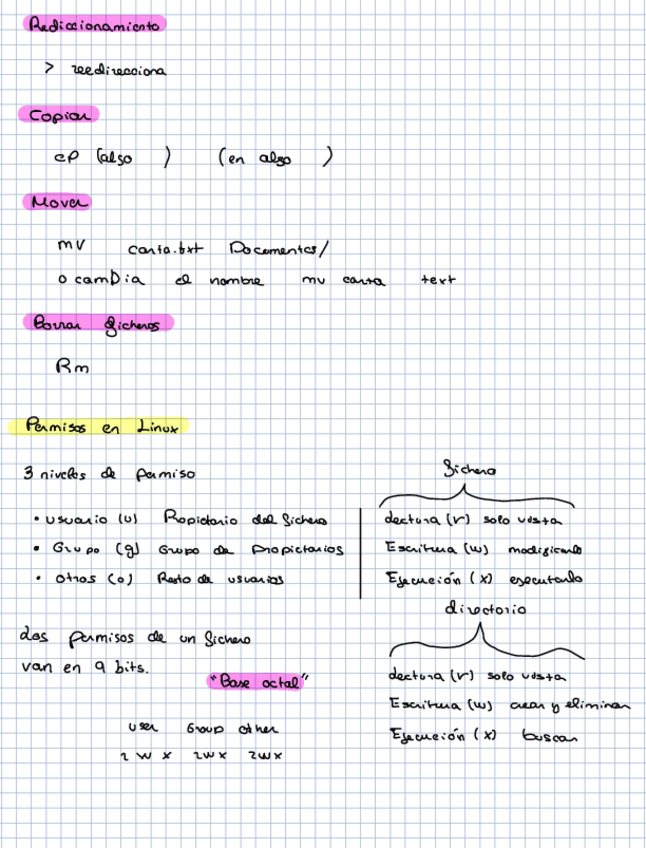 Rediccionamiento
> reedirecciona
Copiar
cp (algo ) (en algo )
Mover
mv carta.txt Documentos/
o cambia el nombre mv carta text
Borrar ficheros
Rm
Permisos en Linux
3 niveles de permiso
• usuario (u) Propietario del fichero
• Grupo (g) Grupo de propietarios
• otros (o) Resto de usuarios
fichero
Lectura (r) solo vista
Escritura (w) modificarlo
Ejecución (x) ejecutarlo
directorio
Lectura (r) solo vista
Escritura (w) crear y eliminar
Ejecución (x) buscar
Los permisos de un fichero
van en 9 bits.
"Base octal"
user Group other
r w x rwx rwx